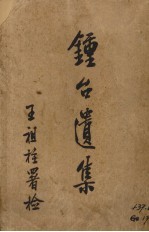 鍾台遺集
王祖姪署檢